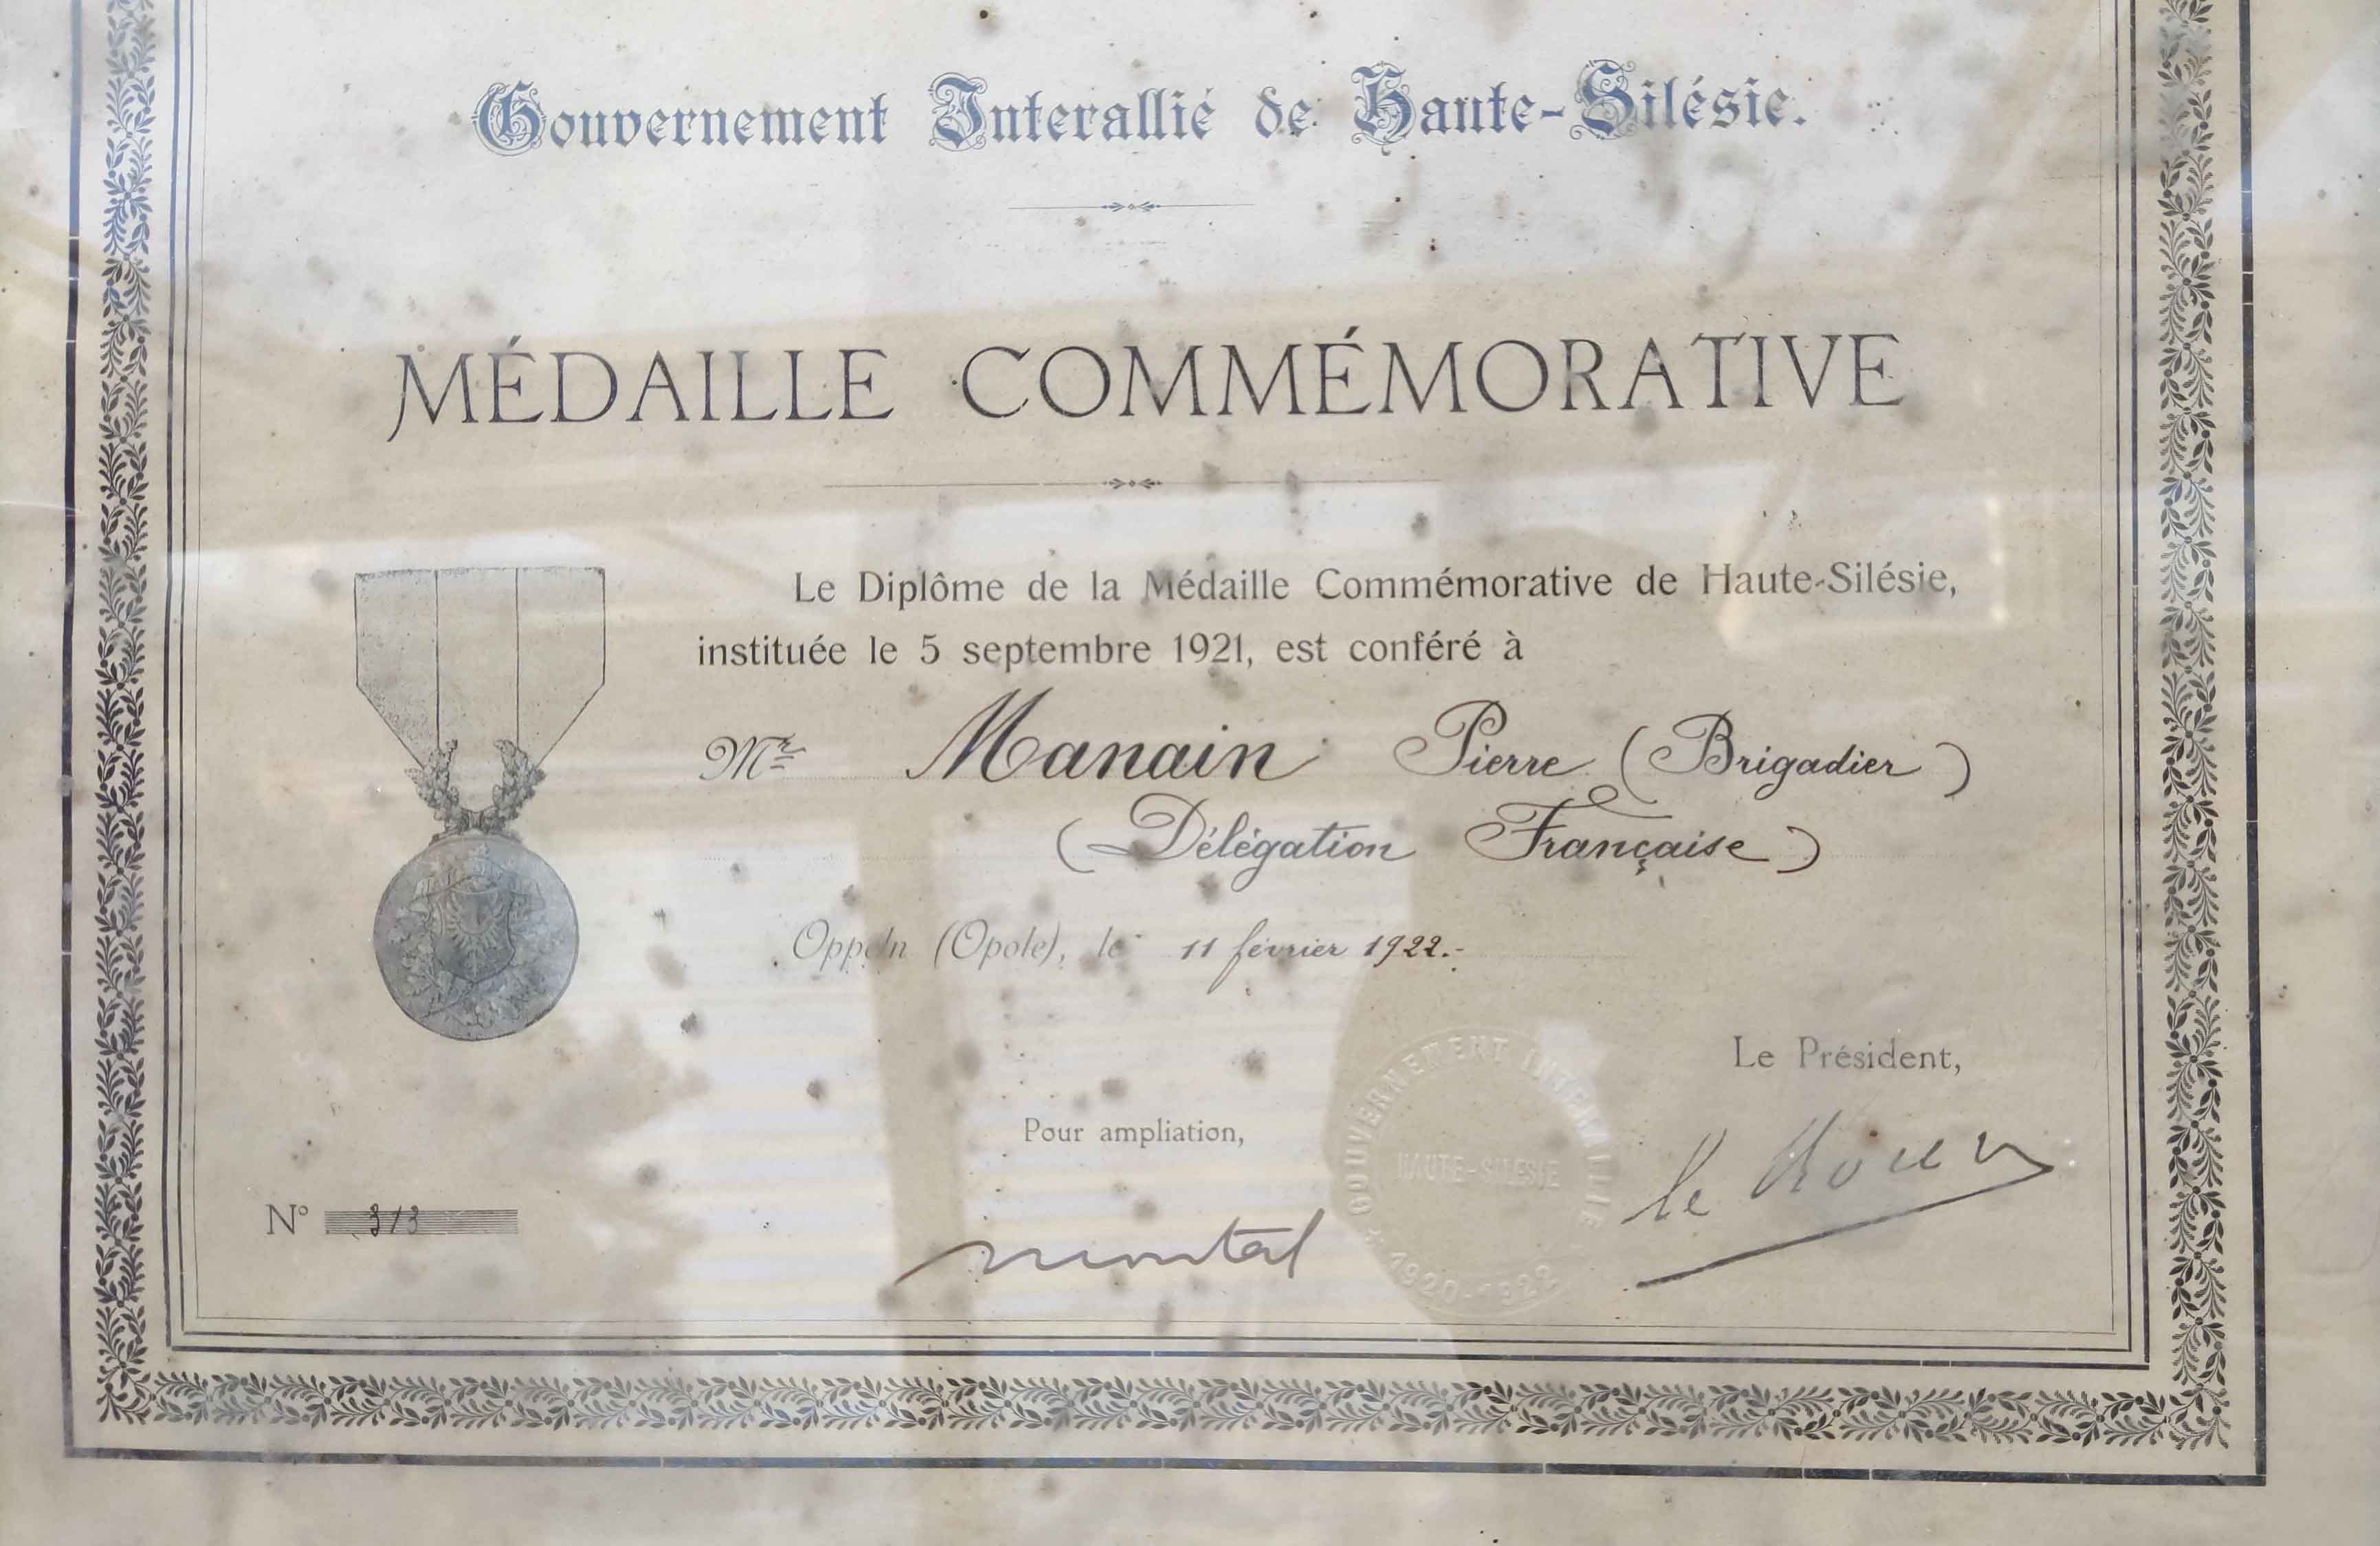 Gouvernement Interallié de Haute-Silésie.
MÉDAILLE COMMÉMORATIVE
Le Diplôme de la Médaille Commémorative de Haute-Silésie,
instituée le 5 septembre 1921, est conféré à
Mr Manain Pierre (Brigadier)
(Délégation Française)
Oppeln (Opole), le 11 février 1922.-
Le Président,
Pour ampliation,
GOUVERNEMENT INTERALLIE
HAUTE-SILESIE
1920-1922
le Rond
N° 313
montal